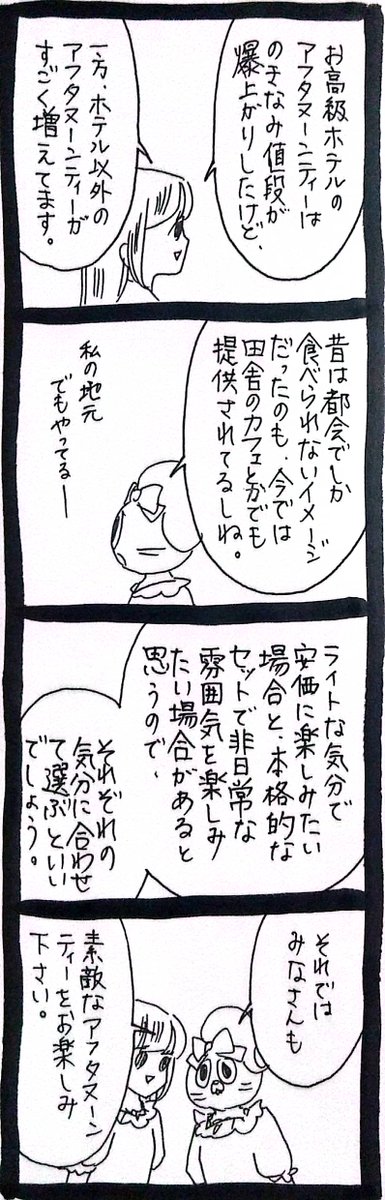 お高級ホテルの
アフタヌーンティーは
のきなみ値段が
爆上がりしたけど、
一方、ホテル以外の
アフタヌーンティーが
すごく増えてます。
昔は都会でしか
食べられないイメージ
だったのも、今では
田舎のカフェとかでも
提供されてるしね。
私の地元
でもやってるー
ライトな気分で
安価に楽しみたい
場合と、本格的な
セットで非日常な
雰囲気を楽しみ
たい場合があると
思うので、
それぞれの
気分に合わせ
て選ぶといい
でしょう。
それでは
みなさんも
素敵なアフタヌーン
ティーをお楽しみ
下さい。